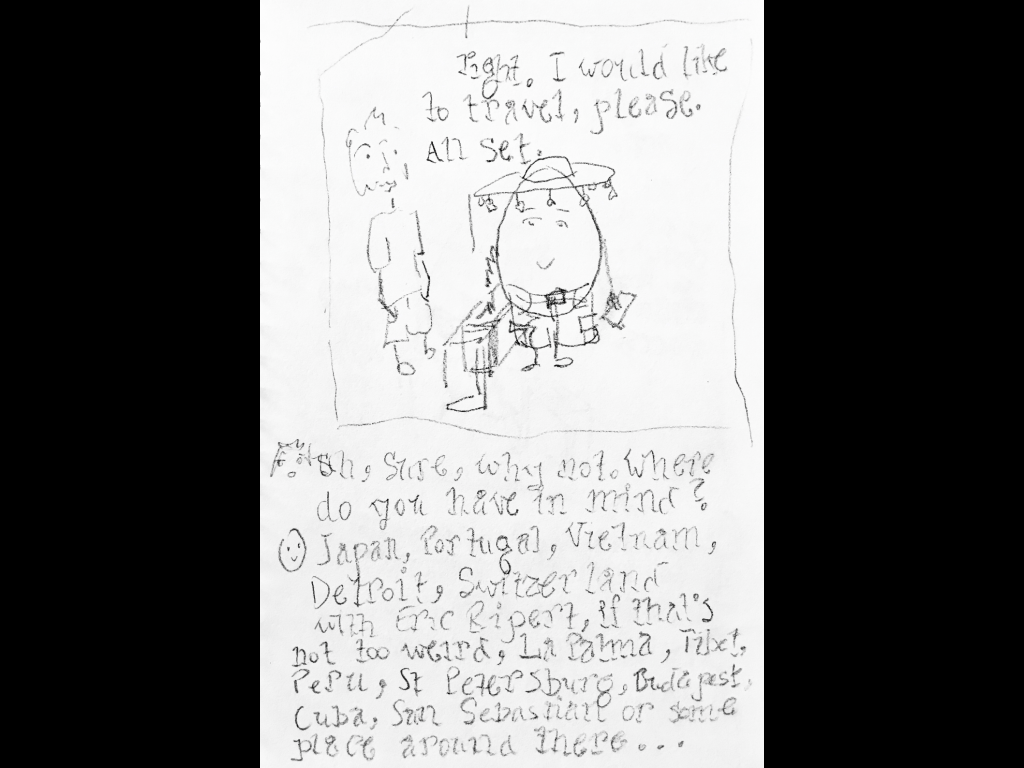 right. I would like
to travel, please.
All set.
uh, sure, why not. Where
do you have in mind?
Japan, Portugal, Vietnam,
Detroit, Switzerland
with Eric Ripert, if that's
not too weird, La Palma, Tibet,
Peru, St Petersburg, Budapest,
Cuba, San Sebastian or some
place around there...